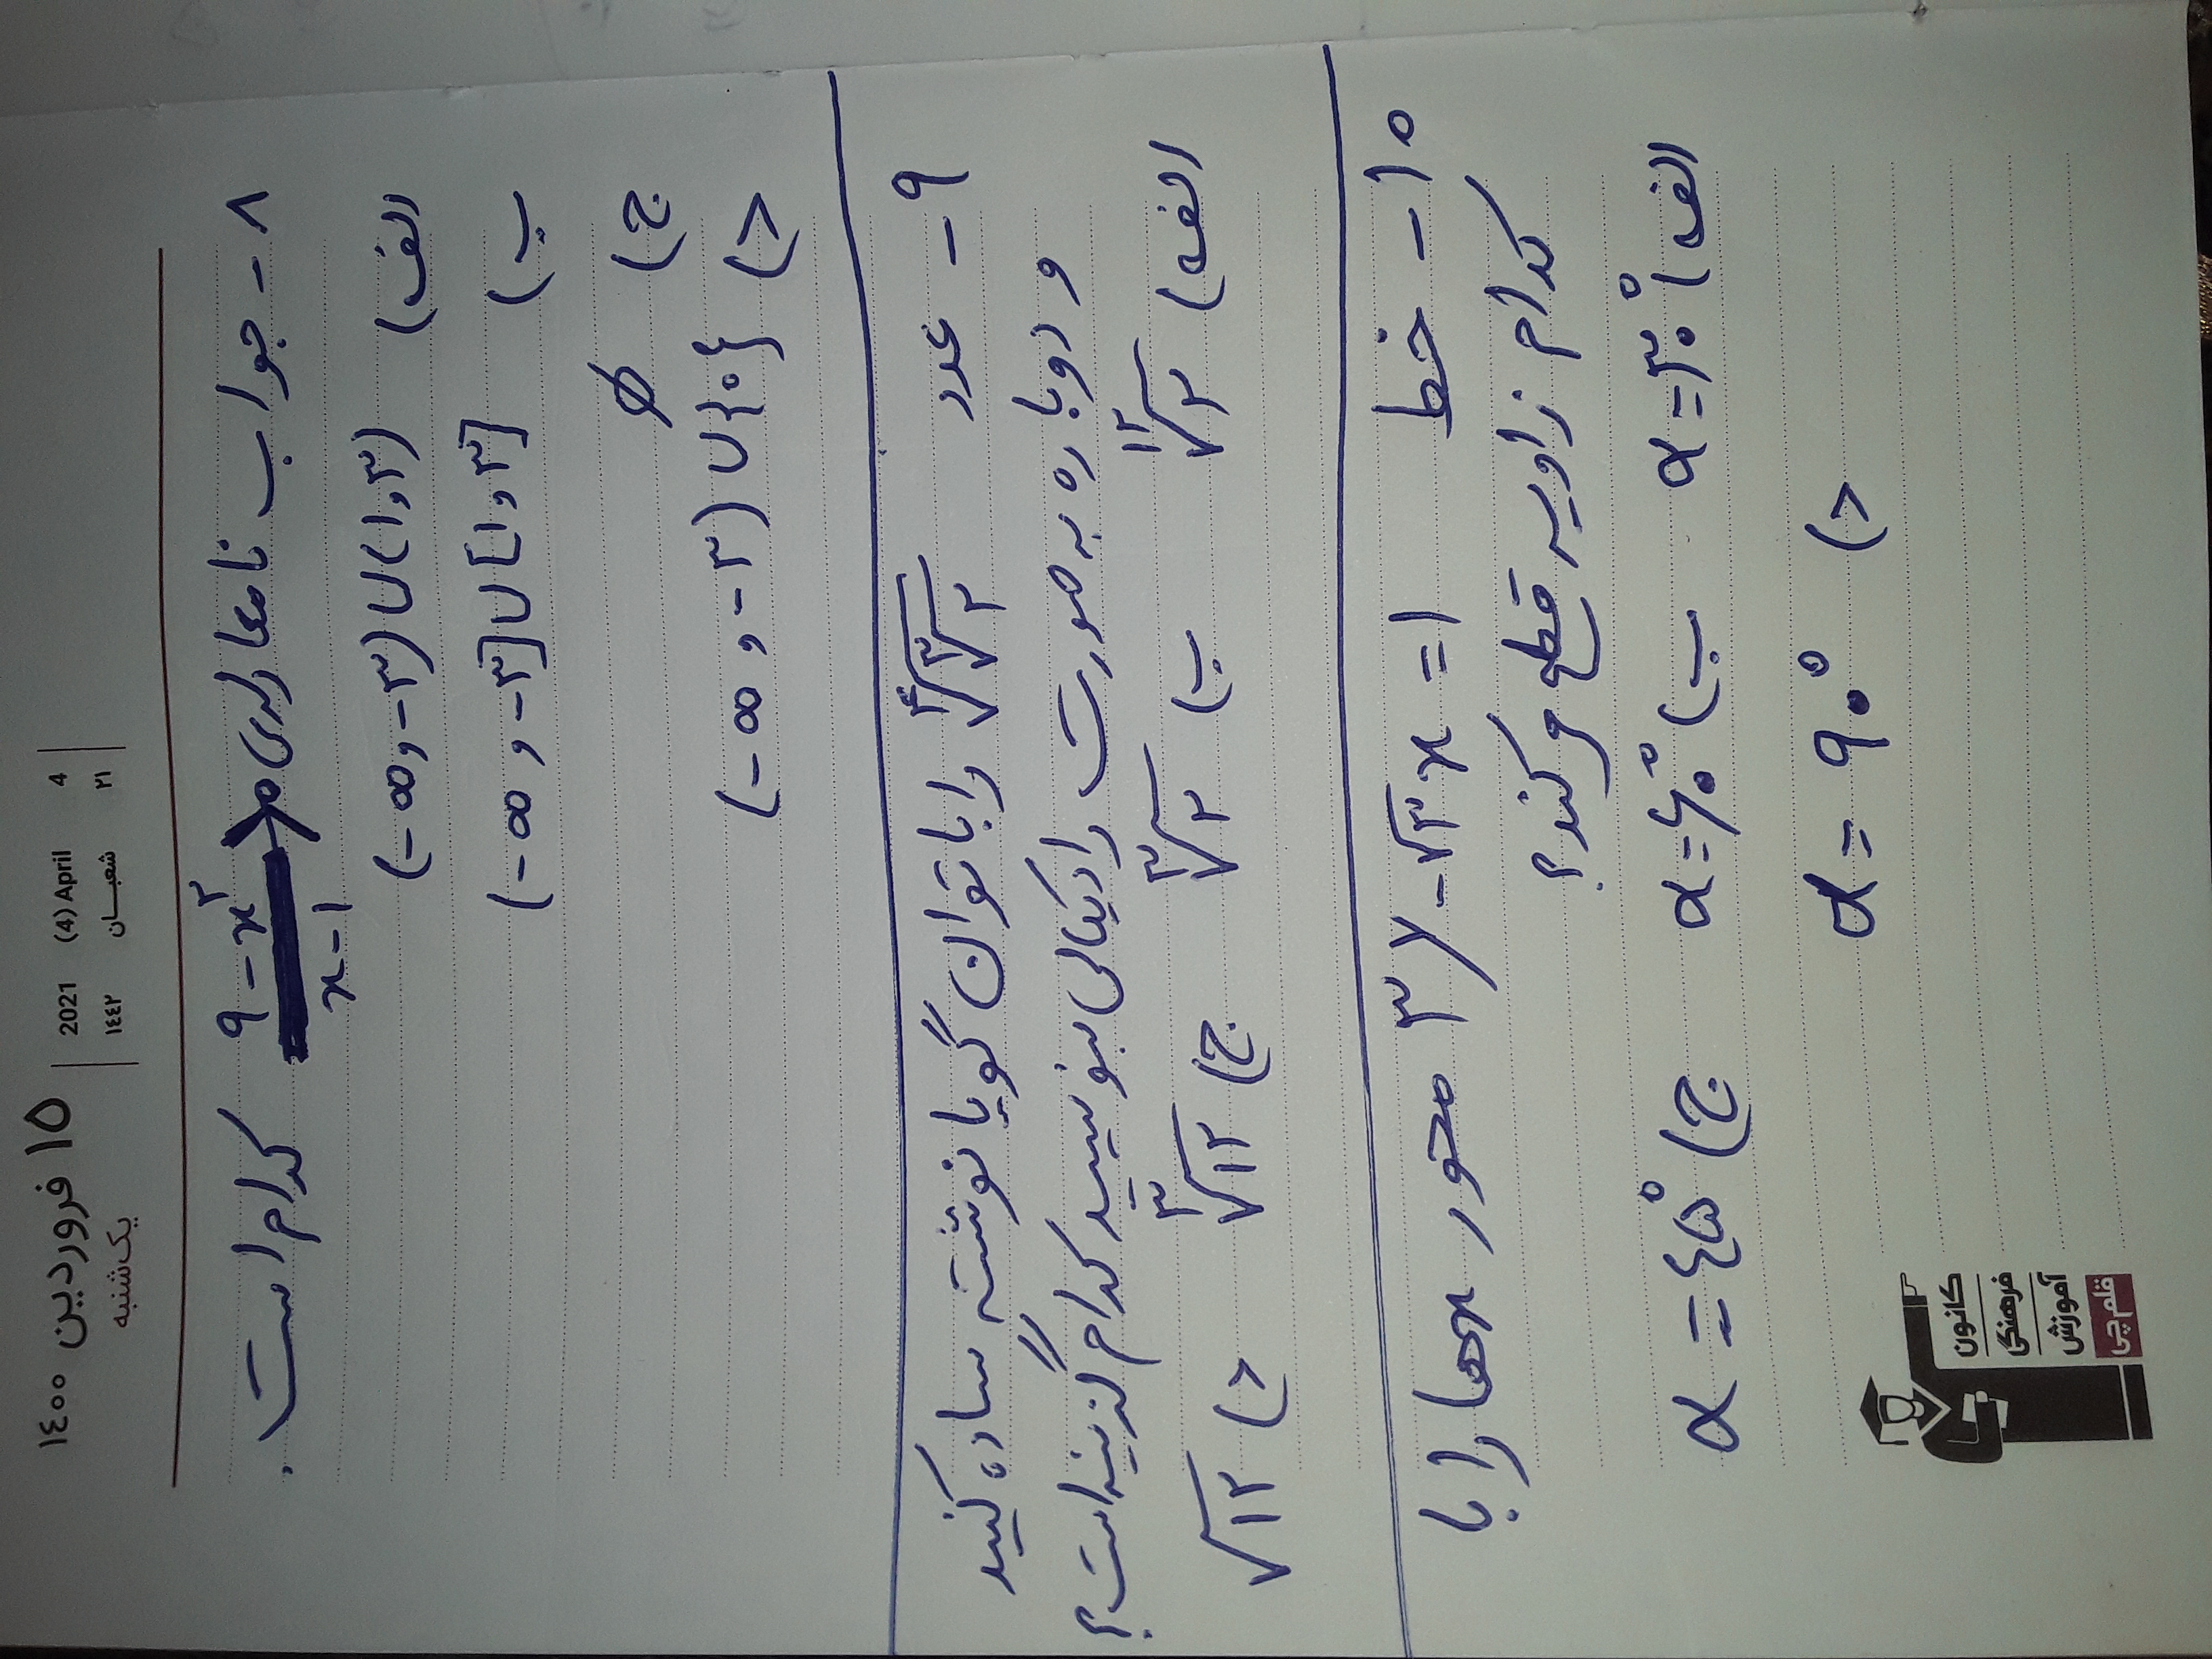 ۱۵ فروردین ۱۴۰۰
یک‌شنبه
2021 (4) April 4
۱۴۴۲ شعبـــان ۲۱
۸ - جواب نامعادله‌ی (۹-x^۲)/(x-۱) > ۰ کدام است.
الف) (-∞, -۳) ∪ (۱, ۳)
ب) (-∞, -۳] ∪ [۱, ۳]
ج) ∅
د) (-∞, -۳) ∪ {۰}
۹ - عدد ∜∛۲ را با توان گویا نوشته ساده کنید
و دوباره به صورت رادیکالی بنویسید کدام گزینه است؟
الف) ¹²√۲ ب) ³√۲ ج) ³√۱۲ د) √۱۲
۱۰ - خط ۳y - √۳x = ۱ محور xها را با
کدام زاویه قطع می‌کند؟
الف) α = ۳۰° ب) α = ۶۰° ج) α = ۴۵°
د) α = ۹۰°
کانون
فرهنگی
آموزش
قلم‌چی